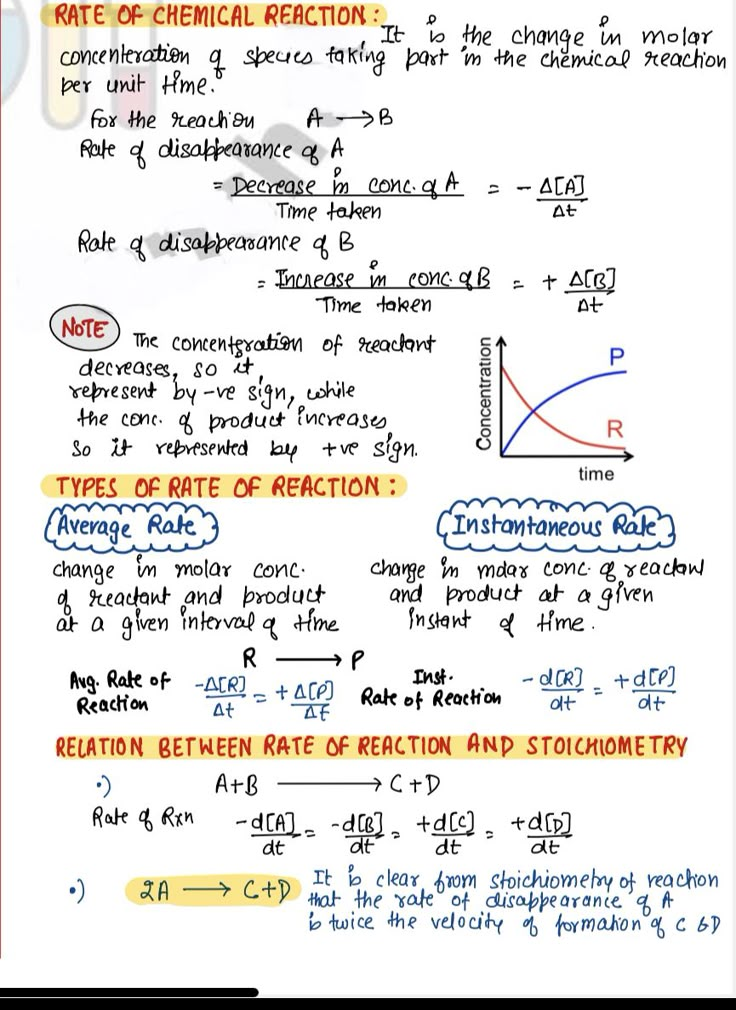 RATE OF CHEMICAL REACTION :
It is the change in molar
concenteration of species taking part in the chemical reaction
per unit time.
For the reaction A → B
Rate of disappearance of A
= Decrease in conc. of A / Time taken = - Δ[A] / Δt
Rate of disappearance of B
= Increase in conc. of B / Time taken = + Δ[B] / Δt
NOTE The concentration of reactant
decreases, so it
represent by -ve sign, while
the conc. of product increases
So it represented by +ve sign.
Concentration
P
R
time
TYPES OF RATE OF REACTION :
Average Rate
change in molar conc.
of reactant and product
at a given interval of time
Instantaneous Rate
change in molar conc. of reactant
and product at a given
instant of time.
R → P
Avg. Rate of Reaction -Δ[R] / Δt = +Δ[P] / Δt
Inst. Rate of Reaction -d[R] / dt = +d[P] / dt
RELATION BETWEEN RATE OF REACTION AND STOICHIOMETRY
•) A+B → C+D
Rate of Rxn -d[A] / dt = -d[B] / dt = +d[C] / dt = +d[D] / dt
•) 2A → C+D It is clear from stoichiometry of reaction
that the rate of disappearance of A
is twice the velocity of formation of C & D